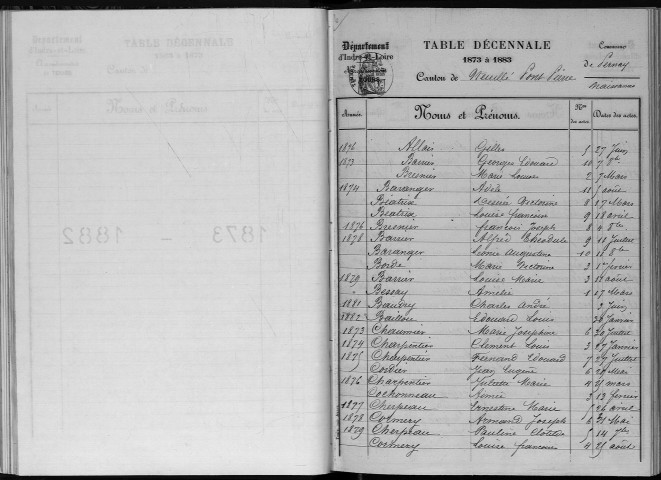 Département
d'Indre-et-Loire
TABLE DÉCENNALE
1873 à 1883
Canton de Neuillé Pont Pierre
Commune
de Pernay
Naissances
Année
Noms et Prénoms.
Nos des actes
Dates des actes.
1876 Allais Gilles 5 27 Juin
1873 Barrier Georges Edouard 10 7 8bre
Bresnier Marie Louise 2 7 Mars
1874 Baranger Adèle 11 5 août
Béatrix Victorine 6 17 Mars
Béatrix Louise françoise 9 18 avril
1876 Bresnier françois Joseph 8 4 8bre
1878 Barrier Alfred Théodule 9 11 Juillet
Baranger Augustine 10 11 8bre
Borde Marie Victorine 3 1er fevrier
1879 Barrier Louise Marie 3 18 août
" Bessay Amélie 1 17 Mars
1881 Beaudry Charles André 2 Juin
1882 Baillou Edouard Louis 28 Janvier
1873 Chaumier Marie Joséphine 6 20 Juillet
1874 Charpentier Clement Louis 3 27 Janvier
1875 Charpentier Fernand Edouard 7 27 Juillet
Cordier Jean Eugène 6 20 Mai
1876 Charpentier Juliette Marie 4 25 mars
Cochonneau 3 13 fevrier
1877 Cherpeau Ernestine Marie 26 avril
1878 Cormery Armand Joseph 6 31 Mai
1879 Cherpeau Pauline Clotilde 5 14
Cormery Louise françoise 4 25 août
TABLE DÉCENNALE
Noms et Prénoms
1873 - 1882